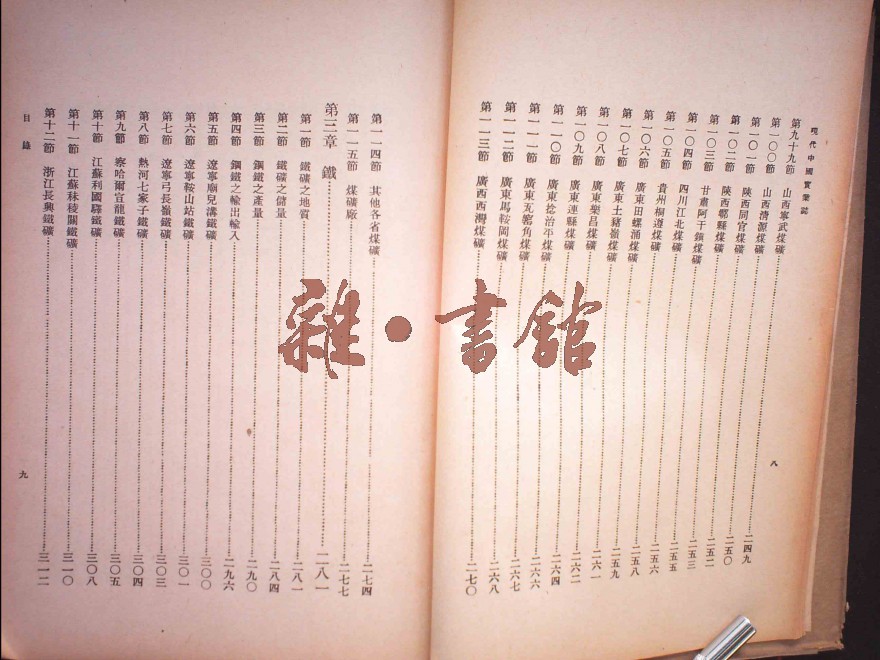 現代中國實業誌
第九十九節 山西寧武煤礦……二四九
第一〇〇節 山西清源煤礦……二五〇
第一〇一節 陝西同官煤礦……二五二
第一〇二節 陝西縣煤礦……二五三
第一〇三節 甘肅阿干鎮煤礦……二五五
第一〇四節 四川江北煤礦……二五六
第一〇五節 貴州桐遵煤礦……二五八
第一〇六節 廣東田螺涌煤礦……二五九
第一〇七節 廣東土豬嶺煤礦……二六一
第一〇八節 廣東樂昌煤礦……二六二
第一〇九節 廣東連縣煤礦……二六四
第一一〇節 廣東治平煤礦……二六六
第一一一節 廣東瓦窰角煤礦……二六七
第一一二節 廣東馬鞍岡煤礦……二六八
第一一三節 廣西西灣煤礦……二七〇
八
第一一四節 其他各省煤礦……二七四
第一一五節 煤礦廠……二七七
第三章 鐵……二八一
第一節 鐵礦之地質……二八一
第二節 鐵礦之儲量……二八四
第三節 鋼鐵之產量……二九〇
第四節 鋼鐵之輸出輸入……二九六
第五節 遼寧廟兒溝鐵礦……三〇〇
第六節 遼寧鞍山站鐵礦……三〇一
第七節 遼寧弓長嶺鐵礦……三〇三
第八節 熱河七家子鐵礦……三〇四
第九節 察哈爾宣龍鐵礦……三〇五
第十節 江蘇利國驛鐵礦……三〇八
第十一節 江蘇秣稜關鐵礦……三一〇
第十二節 浙江長興鐵礦……三一二
目錄
九
雜·書館